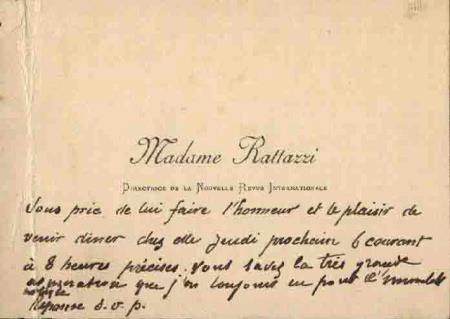 Madame Rattazzi
Directrice de la Nouvelle Revue Internationale
Vous prie de lui faire l'honneur et le plaisir de
venir diner chez elle Jeudi prochain 6 courant
à 8 heures précises. Vous savez la très grande
admiration que j'ai toujours eu pour
Réponse s.v.p.